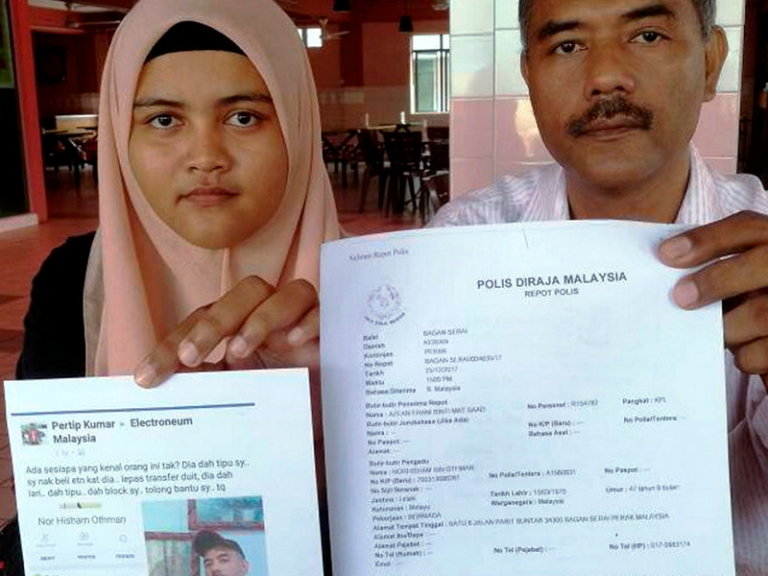 Salinan Repot Polis
POLIS DIRAJA MALAYSIA
REPOT POLIS
Balai BAGAN SERAI
Daerah KERIAN
Kontinjen PERAK
No Repot
Tarikh
Waktu 1500 PM
Bahasa Diterima B. Malaysia
Butir-butir Penerima Repot
Nama : No Personel : Pangkat : KPL
Butir-butir Jurubahasa (Jika Ada)
Nama : --- No K/P (Baru) : --- No Polis/Tentera : ---
No Paspot: --- Bahasa Asal: ---
Alamat: ---
Butir-butir Pengadu
Nama : No Polis/Tentera : No Paspot : ---
No K/P (Baru) :
No Sijil Beranak : --- Tarikh Lahir : Umur : 47 tahun
Jantina : Lelaki Warganegara : Malaysia
Keturunan : Melayu
Pekerjaan : BERNIAGA
Alamat Tempat Tinggal : BATU 8 JALAN PARIT BUNTAR 34300 BAGAN SERAI PERAK MALAYSIA
Alamat Ibu/Bapa : ---
Alamat Pejabat : ---
No Tel (Rumah) : --- No Tel (Pejabat) : --- No Tel (HP) :
Emel : ---
Pertip Kumar ▸ Electroneum
Malaysia
Ada sesiapa yang kenal orang ini tak? Dia dah tipu sy..
sy nak beli etn kat dia.. lepas transfer duit, dia dah
lari.. dah tipu.. dah block sy.. tolong bantu sy.. tq
Nor Hisham Othman
ABOUT PHOTOS FRIENDS